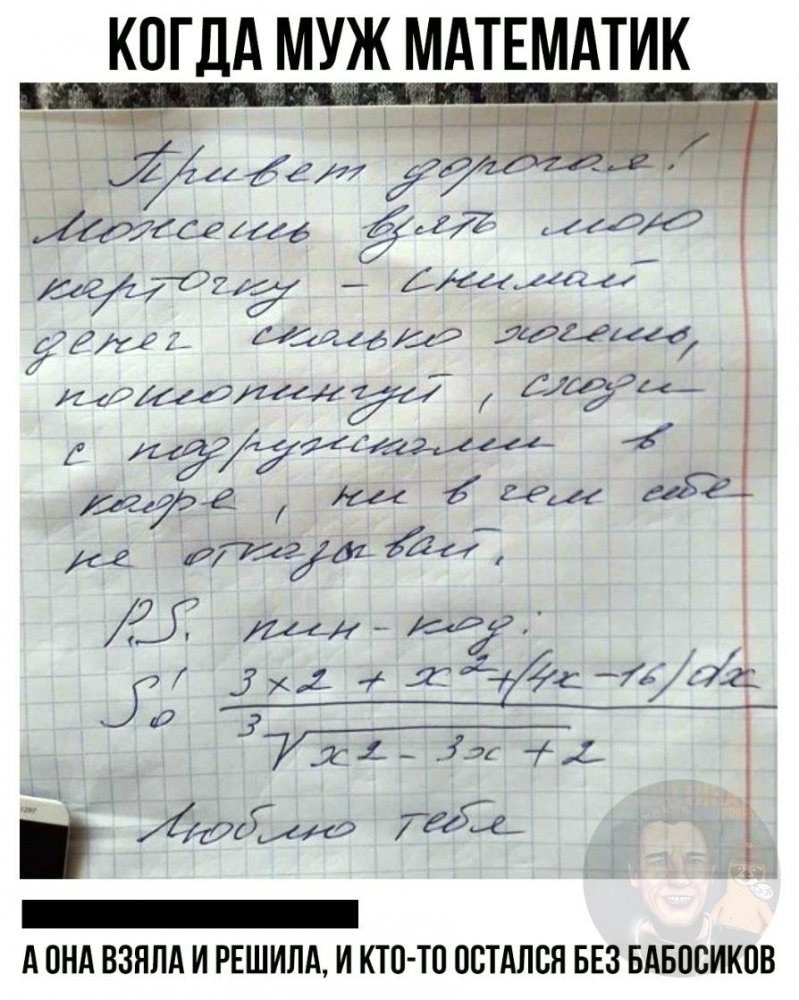 КОГДА МУЖ МАТЕМАТИК
Привет дорогая!
Можешь взять мою
карточку - снимай
денег сколько хочешь,
пошопингуй, сходи
с подружками в
кафе, ни в чем себе
не отказывай.
P.S. пин-код:
∫₀¹ 3x2 + x²+(4x-16)dx
∛x2-3x+2
Люблю тебя
А ОНА ВЗЯЛА И РЕШИЛА, И КТО-ТО ОСТАЛСЯ БЕЗ БАБОСИКОВ